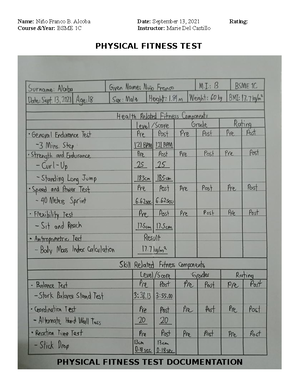 Name: Niño Franco B. Alcoba Date: September 13, 2021 Rating:
Course &Year: BSME 1C Instructor: Marie Del Castillo
PHYSICAL FITNESS TEST
Surname: Alcoba Given Name: Niño Franco M.I: B BSME 1C
Date: Sept 13, 2021 Age: 18 Sex: Male Height: Weight: 60 kg BMI: 17.7 kg/m²
Health Related Fitness Components
Level/Score Grade Rating
- General Endurance Test Pre Post Pre Post Pre Post
- 3 Mins. Step
- Strength and Endurance Pre Post Pre Post Pre Post
- Curl-Up 25 25
- Standing Long Jump
- Speed and Power Test Pre Post Pre Post Pre Post
- 40 Meters Sprint
- Flexibility Test Pre Post Pre Post Pre Post
- Sit and Reach
- Antropometric Test Result
- Body Mass Index Calculation 17.7 kg/m²
Skill Related Fitness Components
Level/Score Grades Rating
- Balance Test Pre Post Pre Post Pre Post
- Stork Balance Stand Test
- Coordination Test Pre Post Pre Post Pre Post
- Alternate Hand Wall Toss 20 20
- Reaction Time Test Pre Post Pre Post Pre Post
- Stick Drop
PHYSICAL FITNESS TEST DOCUMENTATION